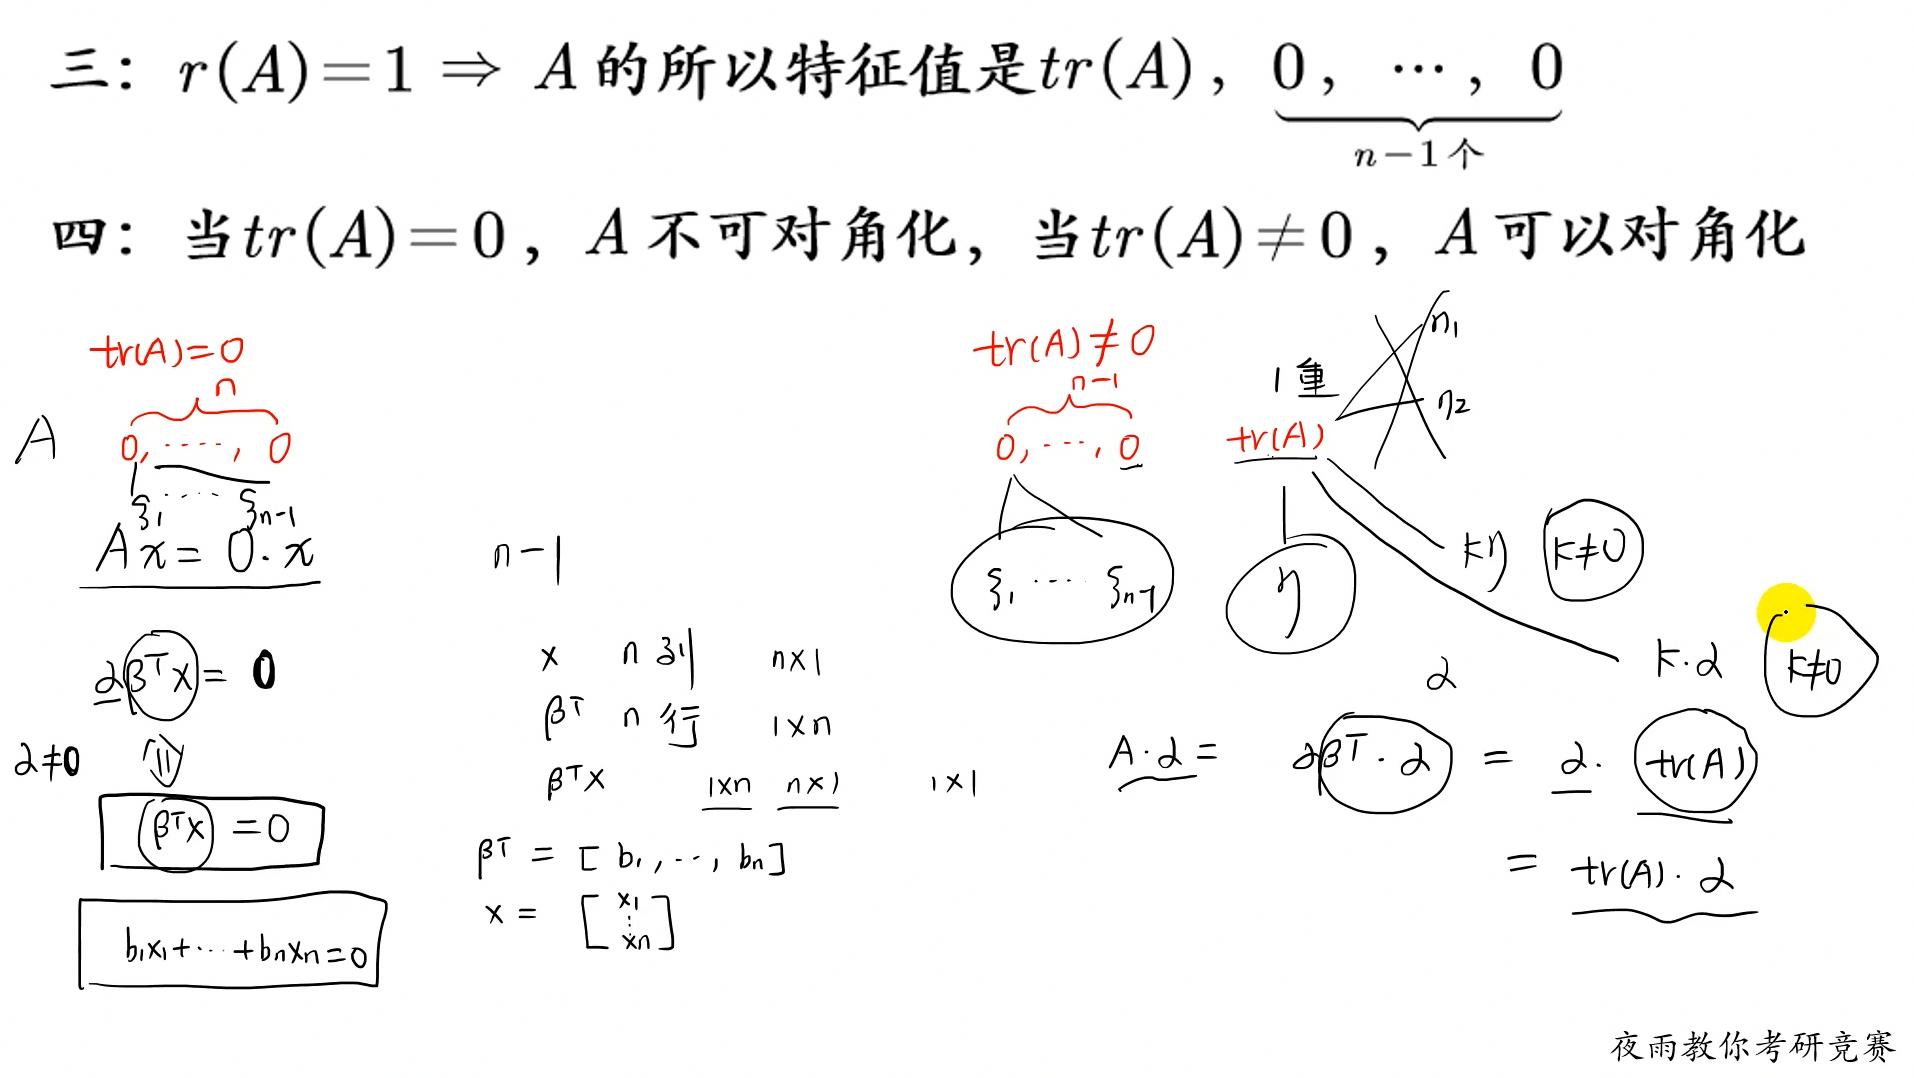 三：r(A)=1 ⇒ A 的所以特征值是tr(A)，0，⋯，0
n−1个
四：当tr(A)=0，A 不可对角化，当tr(A)≠0，A 可以对角化
tr(A)=0
n
A
0, ⋯⋯, 0
ξ₁ ⋯⋯ ξn-1
Ax = 0·x
αβᵀx = 0
α≠0
βᵀx = 0
b₁x₁+⋯+bnxn=0
n-1
x n列 n×1
βᵀ n行 1×n
βᵀx 1×n n×1 1×1
βᵀ = [b₁,⋯,bn]
x = [x₁ ⋮ xn]
tr(A)≠0
n-1
0, ⋯, 0
1重
tr(A)
η₁
η₂
ξ₁ ⋯⋯ ξn-1
η
kη k≠0
k·α k≠0
α
A·α = αβᵀ·α = α·tr(A)
= tr(A)·α
夜雨教你考研竞赛